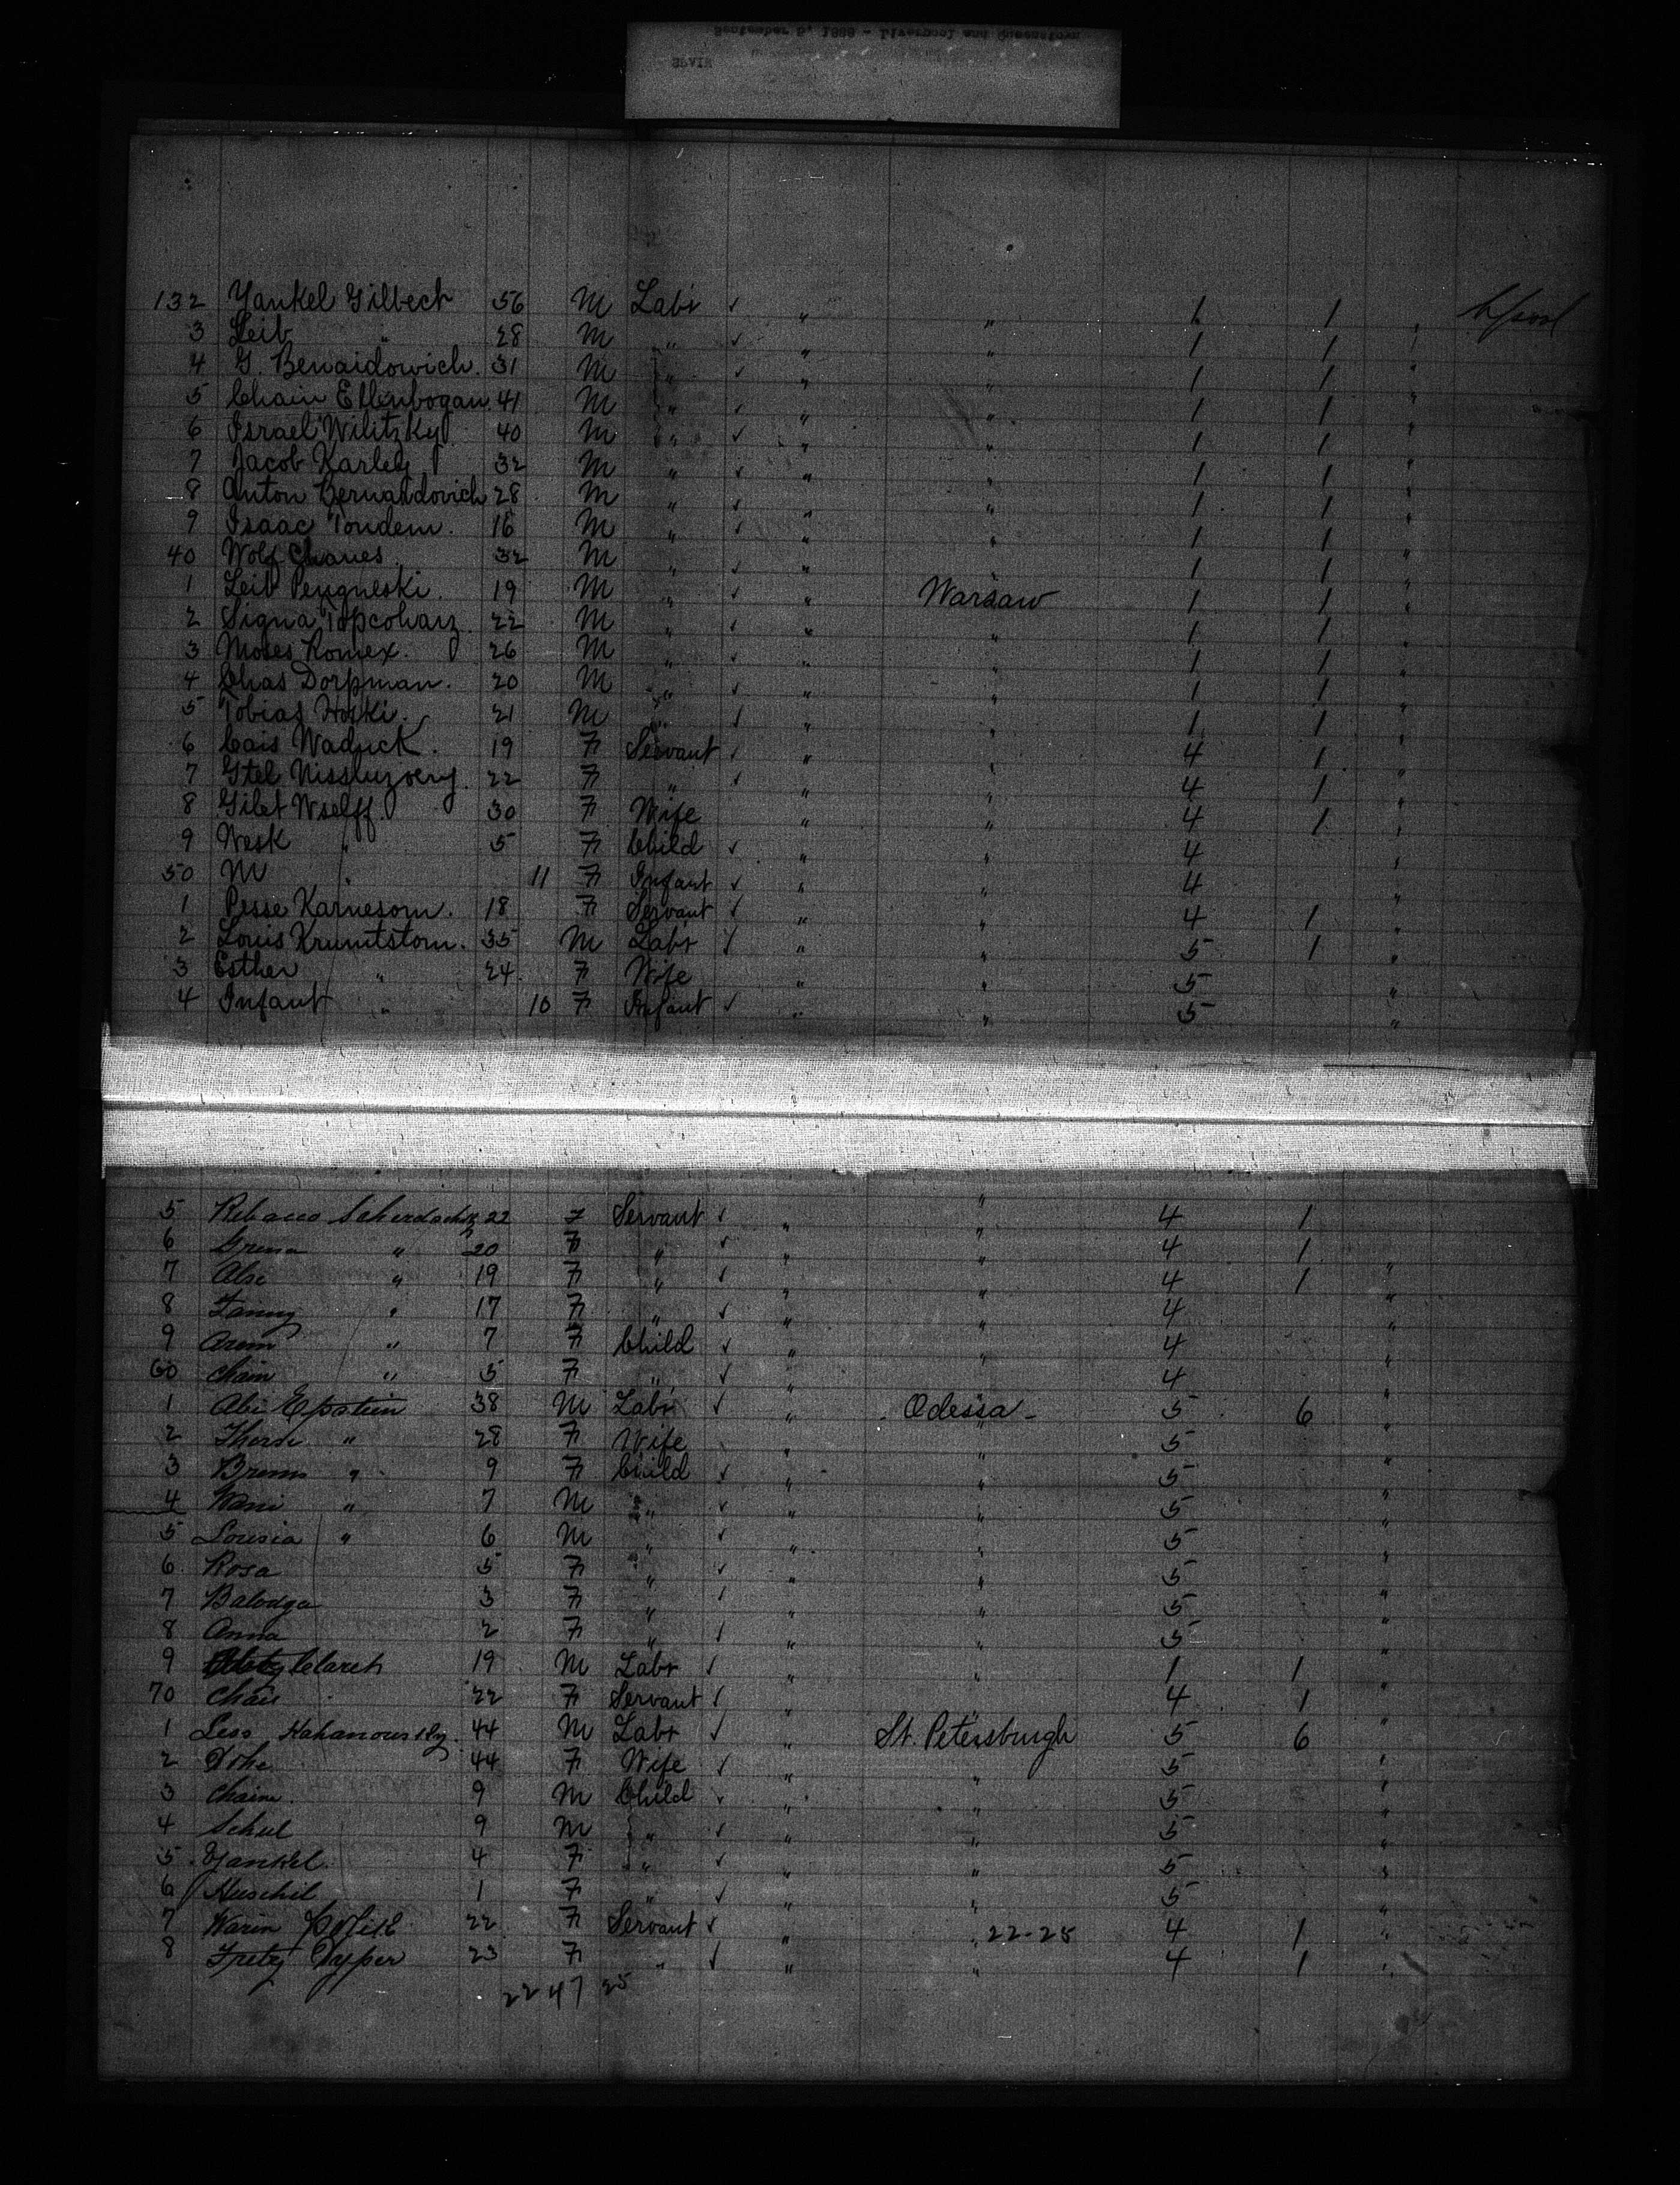 September 5, 1888 - Liverpool and Queenstown
132 Yankel Gilbech 56 M Labr ✓ " " 1 1 " L'pool
3 Leib " 28 M " ✓ " " 1 1 "
4 G. Benaidowich. 31 M " ✓ " " 1 1 "
5 Chain Ellenbogan. 41 M " ✓ " " 1 1 "
6 Israel Wilitzky 40 M " ✓ " " 1 1 "
7 Jacob Karley 32 M " ✓ " " 1 1 "
8 Anton Bernandovich 28 M " ✓ " " 1 1 "
9 Isaac Tondem. 16 M " ✓ " " 1 1 "
40 Wolf Chanes. 32 M " ✓ " " 1 1 "
1 Leib Pengneski. 19 M " ✓ " Warsaw 1 1 "
2 Signa Topcoharz. 22 M " ✓ " " 1 1 "
3 Moses Romex. 26 M " ✓ " " 1 1 "
4 Chas Dorpman. 20 M " ✓ " " 1 1 "
5 Tobias 21 M " ✓ " " 1 1 "
6 Cais Waduck. 19 F Servant ✓ " " 4 1 "
7 Gtel 22 F " ✓ " " 4 1 "
8 Gilet Wselff. 30 F Wife " " 4 1 "
9 Wesk " 5 F Child ✓ " " 4 "
50 M " 11 F Infant ✓ " " 4 "
1 Pesse Karnesom. 18 F Servant ✓ " " 4 1 "
2 Louis Krumtstom. 35 M Labr ✓ " " 5 1 "
3 Esther " 24 F Wife " " 5 "
4 Infant " 10 F Infant ✓ " " 5 "
5 22 F Servant ✓ " " 4 1
6 " 20 F " ✓ " " 4 1 "
7 Alse " 19 F " ✓ " " 4 1 "
8 Fanny " 17 F " ✓ " " 4 "
9 Arem " 7 F Child ✓ " " 4 "
60 Chain " 5 F " ✓ " " 4 "
1 Abe Epstein 38 M Labr ✓ " Odessa 5 6 "
2 " 28 F Wife " " 5 "
3 " 9 F Child ✓ " " 5 "
4 " 7 M " ✓ " " 5 "
5 Lousia " 6 M " ✓ " " 5 "
6 Rosa 5 F " ✓ " " 5 "
7 Balodga 3 F " ✓ " " 5 "
8 Anna 2 F " ✓ " " 5 "
9 Clarch 19 M Labr ✓ " " 1 1 "
70 Chai 22 F Servant ✓ " " 4 1 "
1 Less Kahanoursky. 44 M Labr ✓ " St. Petersburgh 5 6 "
2 44 F Wife ✓ " " 5 "
3 Chaim. 9 M Child ✓ " " 5 "
4 Schul 9 M " ✓ " " 5 "
5 Yankel. 4 F " ✓ " " 5 "
6 Huschil 1 F " ✓ " " 5 "
7 Warin 22 F Servant ✓ " " 22-25 4 1 "
8 Typer 23 F " ✓ " " 4 1 "
22 47 25